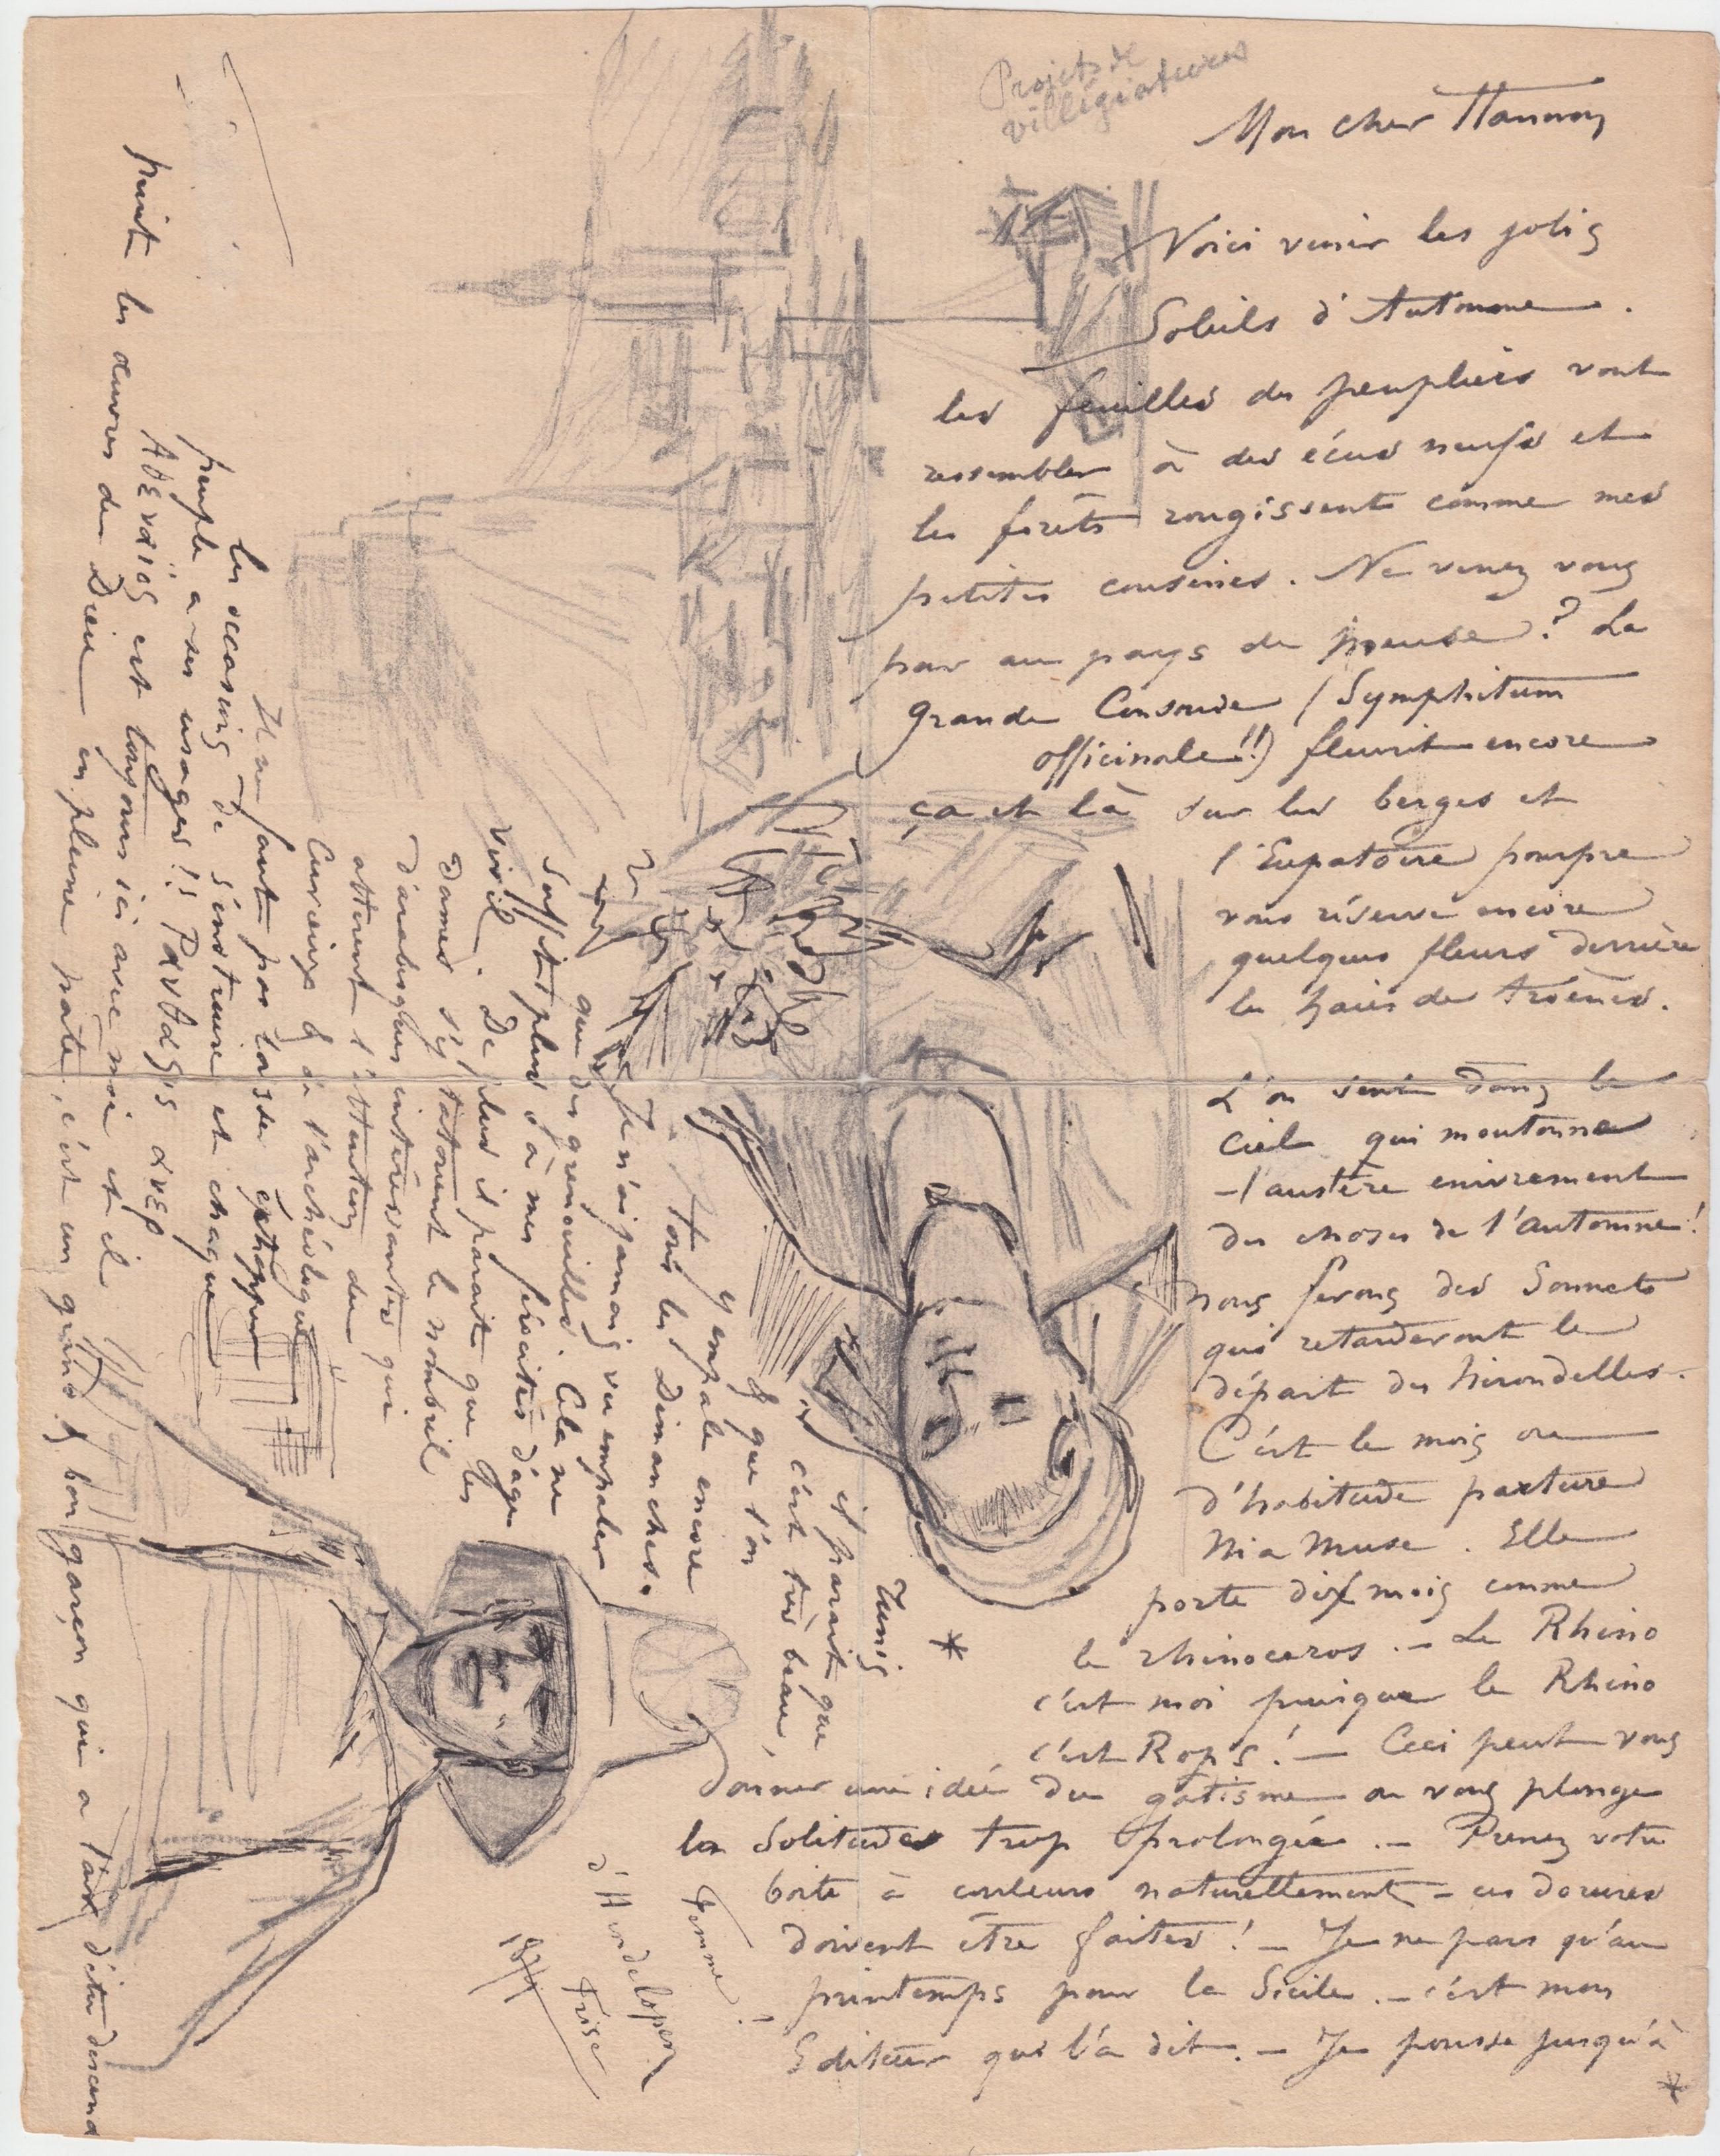 Projets de
villégiatures
Mon cher Hannon
Voici venir les jolis
Soleils d'Automne.
les feuilles des peupliers vont
ressembler à des écus neufs et
les forêts rougissent comme mes
petites cousines. Ne venez vous
pas au pays de Meuse? La
grande Consoude (Symphitum
officinale!!) fleurit encore
ça et là sur les berges et
l'Eupatoire pourpre
vous réserve encore
quelques fleurs derrière
les haies de troènes.
L'on sent dans le
Ciel qui moutonne
l'austère enivrement
des choses de l'automne!
nous ferons des Sonnets
qui retarderont le
départ des hirondelles.
C'est le mois où
d'habitude
Ma Muse. Elle
porte dix mois comme
le rhinoceros. – Le Rhino
c'est moi puisque le Rhino
c'est Rops! – Ceci peut vous
donner une idée du gatisme où vous plonge
la Solitude trop prolongée. – Prenez votre
boite à couleurs naturellement – ces dorures
doivent être faites! – Je ne pars qu'au
printemps pour la Sicile. – c'est mon
Editeur qui l'a dit. – Je pousse jusqu'à
*
*
Tunis
il parait que
c'est très beau,
& que l'on
y empale encore
tous les Dimanches.
Je n'ai jamais vu empaler
que des grenouilles. Cela ne
suffit plus à mes férocités d'âge
viril. De plus il parait que les
Dames s'y tatouent le nombril
d'arabesques intéressantes qui
attirent l'attention du
Curieux & de l'archéologue
Il ne faut pas laisser échapper
les occasions de s'instruire et chaque
peuple a ses usages!!
est toujours ici avec moi et il
peint les œuvres de Dieu en pleine pâte, c'est un grand & bon garçon qui a l'air d'être descend
Femme!
d'Hindelopen
Frise